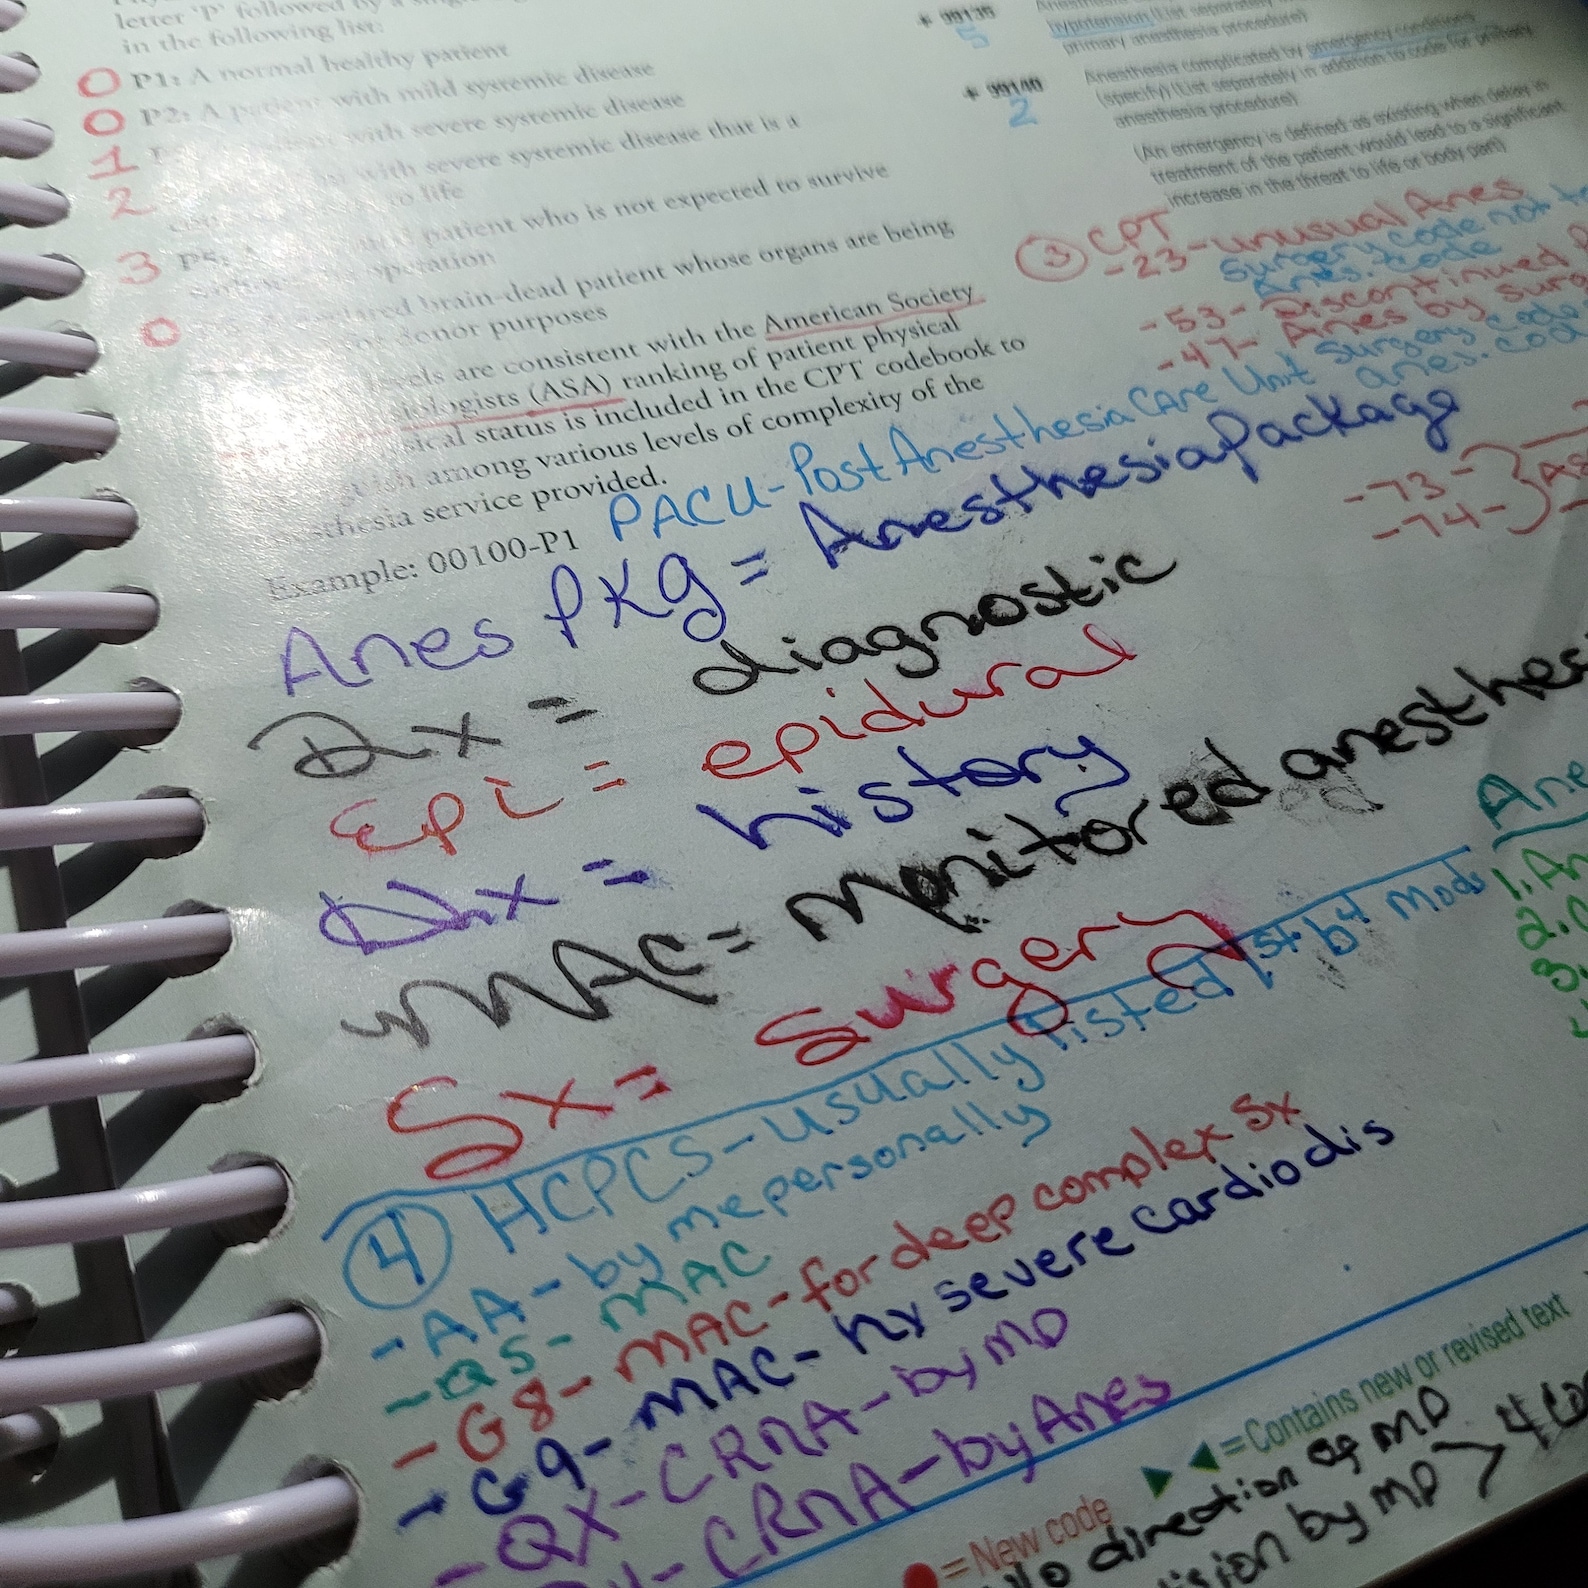 letter 'P' followed by a
in the following list:
0 P1: A normal healthy patient
0 P2: A patient with mild systemic disease
1 with severe systemic disease
2 with severe systemic disease that is a
to life
3 P5: patient who is not expected to survive
operation
0 brain-dead patient whose organs are being
donor purposes
are consistent with the American Society
(ASA) ranking of patient physical
status is included in the CPT codebook to
among various levels of complexity of the
service provided.
Example: 00100-P1
+ 99135
5
hypotension (List separately
primary anesthesia procedure)
+ 99140
2
Anesthesia complicated by emergency conditions
(specify) (List separately in addition to code for primary
anesthesia procedure)
(An emergency is defined as existing when delay in
treatment of the patient would lead to a significant
increase in the threat to life or body part)
3 CPT
-23-unusual Anes
surgery code not
Anes. code
-53- Discontinued
-47- Anes by
surgery code
anes.
-73-
-74-
PACU-Post Anesthesia Care Unit
Anes PKg = Anesthesia Package
Dx = diagnostic
Epi = epidural
Hx = history
MAC = Monitored
Sx = Surgery
4 HCPCS-usually listed 1st by
-AA-by me personally
-QS- MAC
-G8-MAC-for deep complex Sx
-G9-MAC-hx severe cardio dis
-QX-CRNA-by MD
-CRNA-by Anes
1.
2.
3.
=Contains new or revised text
=New code
direction of MD
by MD > 4